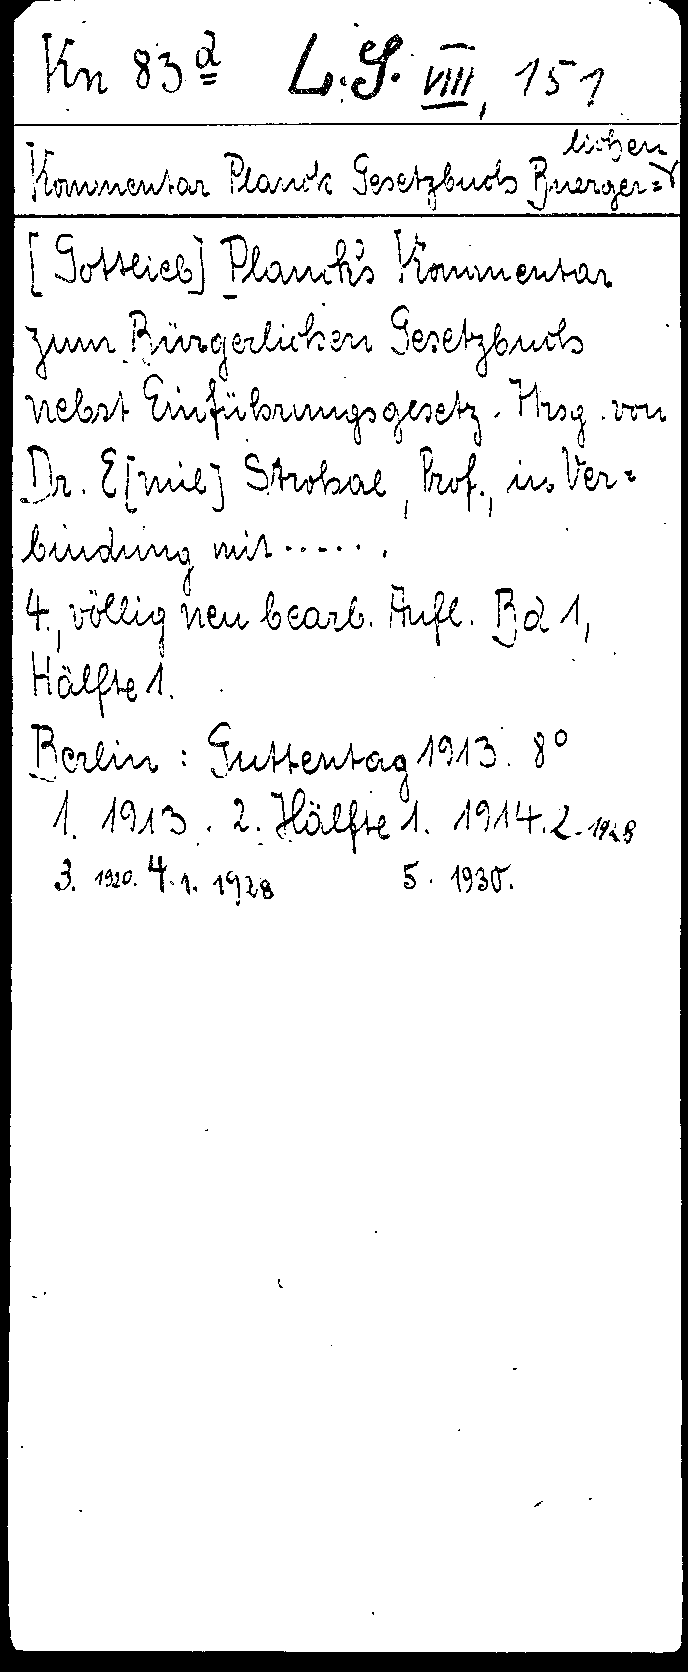 Kn 83 a L.S. VIIII, 151
Kommentar Planck Gesetzbuch Buerger=lichen
[Gottlieb] Planck's Kommentar
zum Bürgerlichen Gesetzbuch
nebst Einführungsgesetz. Hrsg. von
Dr. E[mil] Strohal, Prof., in Ver=
bindung mit ......
4., völlig neu bearb. Aufl. Bd 1,
Hälfte 1.
Berlin: Guttentag 1913. 8°
1. 1913. 2. Hälfte 1. 1914. 2. 1928
3. 1920. 4. 1. 1928 5. 1930.